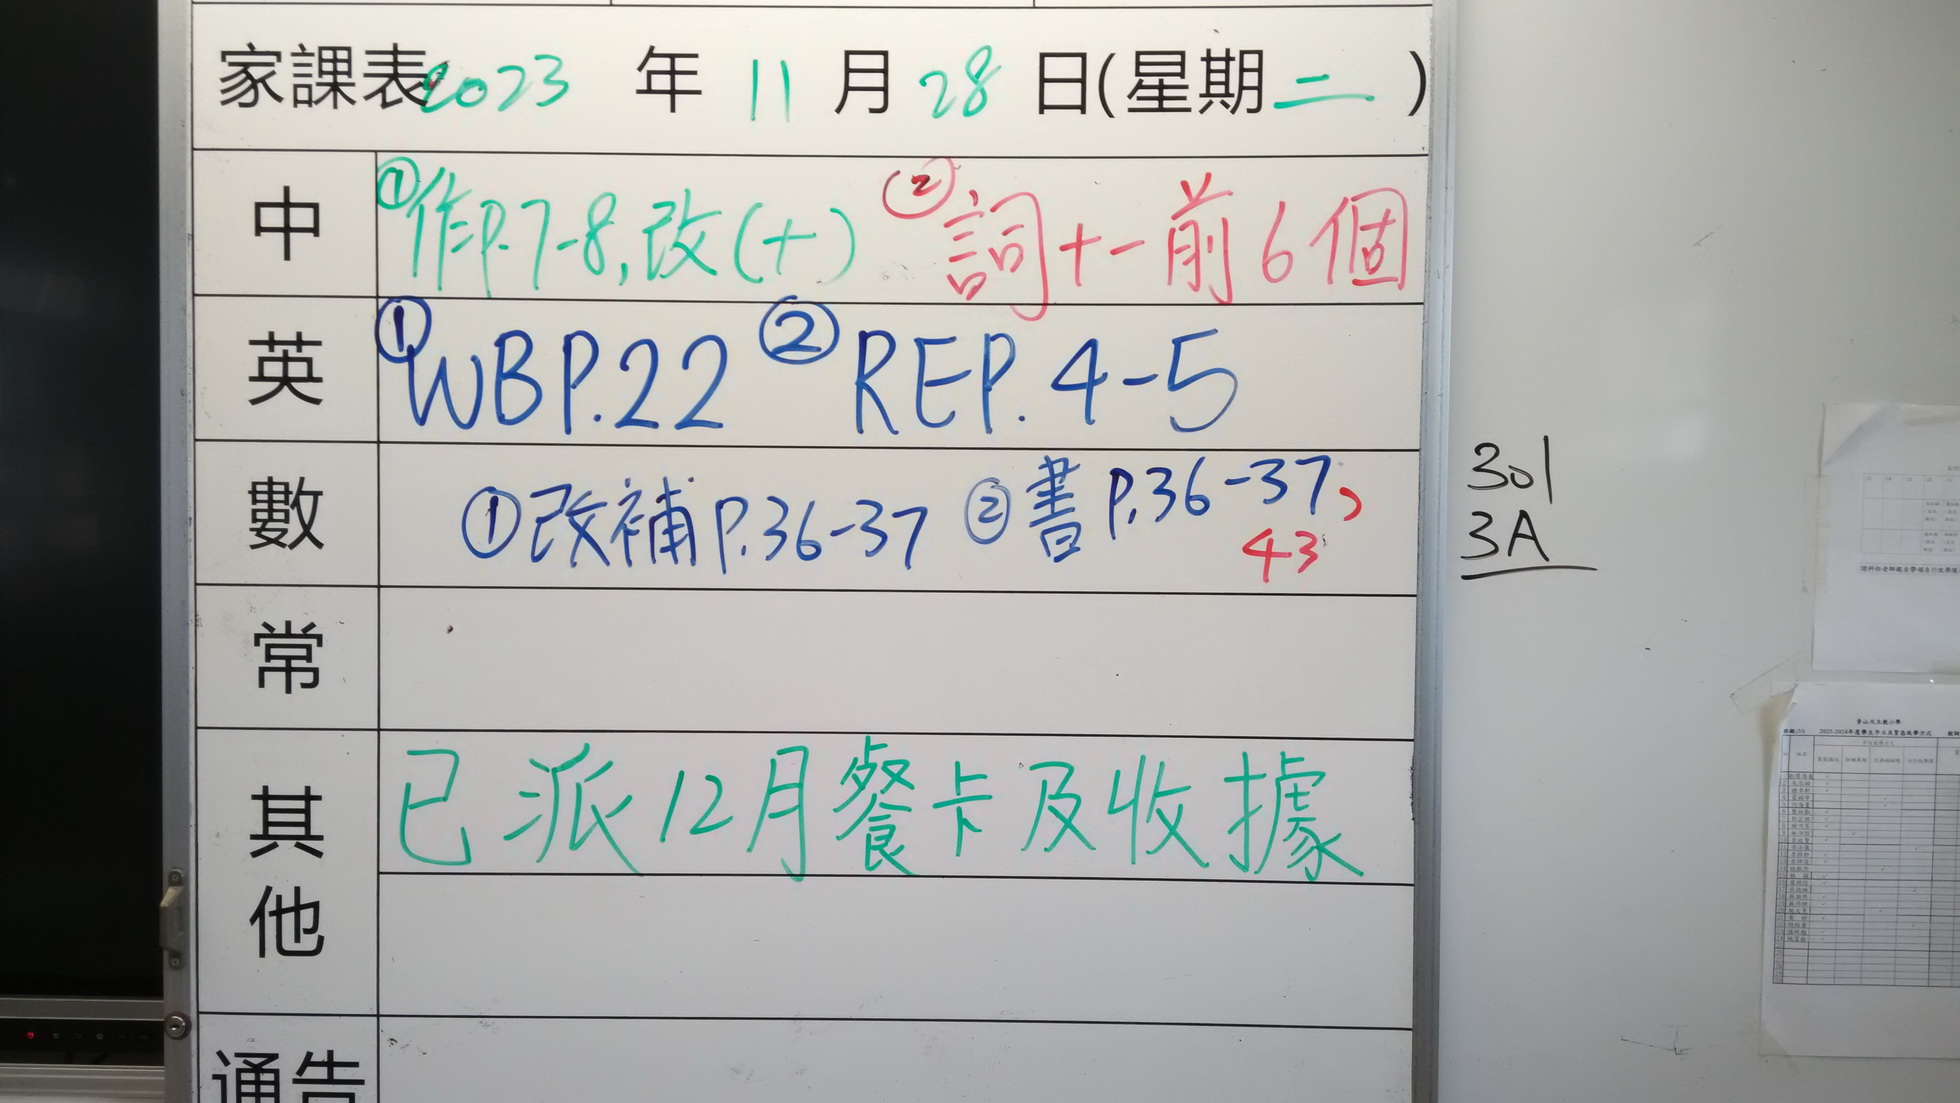 家課表2023 年 11 月 28 日(星期二)
中 ①作P.7-8,改(十) ②詞十一前6個
英 ①WBP.22 ②REP.4-5
數 ①改補P.36-37 ②書P.36-37,
43
301
3A
常
其他 已派12月餐卡及收據
通告